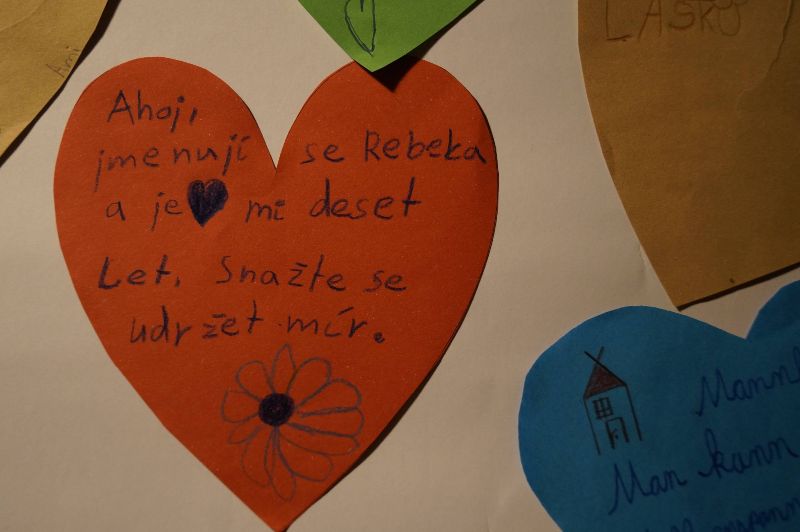 Ahoj,
jmenuji se Rebeka
a je mi deset
Let. Snažte se
udržet mír.
LÁSKU
Man kann